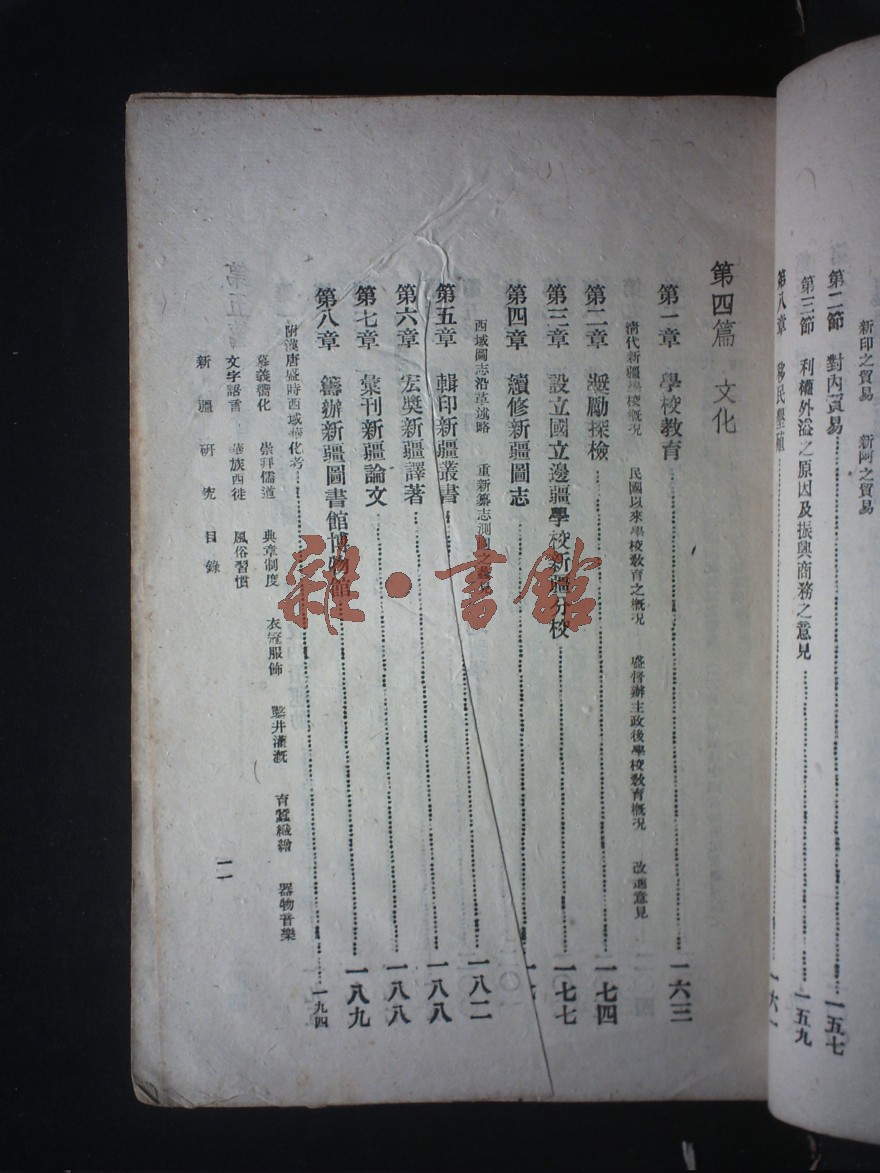 新印之貿易　新阿之貿易
第二節　對內貿易 一五七
第三節　利權外溢之原因及振興商務之意見 一五九
第八章　移民墾殖 一六一
第四篇　文化
第一章　學校教育 一六三
清代新疆學校概況　民國以來學校教育之概況　盛督辦主政後學校教育概況　改進意見
第二章　獎勵探檢 一七四
第三章　設立國立邊疆學校新疆分校 一七七
第四章　續修新疆圖志
西域圖志沿革述略　重新纂志測 一八二
第五章　輯印新疆叢書 一八八
第六章　宏獎新疆譯著 一八八
第七章　彙刊新疆論文 一八九
第八章　籌辦新疆圖書館博物館
附漢唐盛時西域華化考 一九四
慕義嚮化　崇拜儒道　典章制度　衣冠服飾　鑿井灌溉　育蠶織繒　器物音樂
文字語言　華族西徙　風俗習慣
新疆研究　目錄
一一
雜·書館